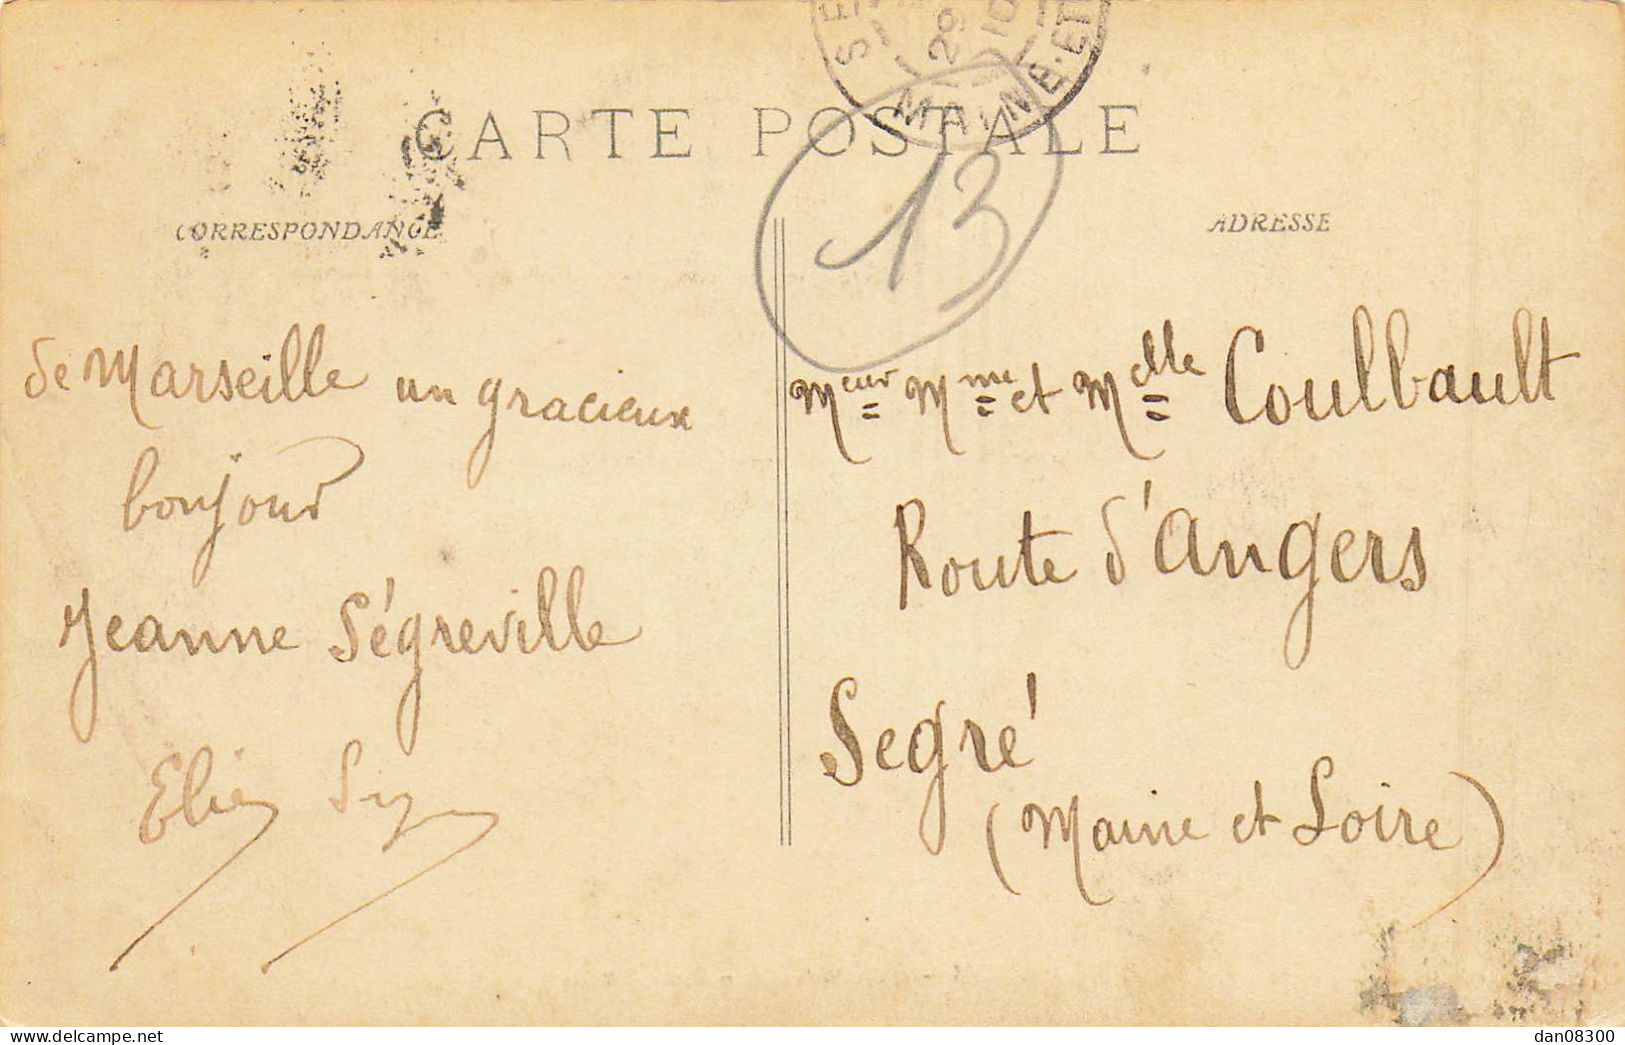 CARTE POSTALE
13
CORRESPONDANCE
ADRESSE
de Marseille un gracieux
bonjour
Jeanne Ségreville
Elie
Meur Mme et Melle Coulbault
Route d'Angers
Segré
(Maine et Loire)
SE
29
10
MAINE-ET
www.delcampe.net
dan08300